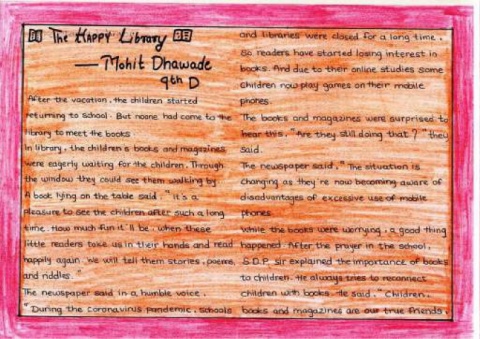 The HAPPY Library
— Mohit Dhawade
9th D
After the vacation, the children started
returning to school. But noone had come to the
library to meet the books
In library, the children's books and magazines
were eagerly waiting for the children. Through
the window they could see them walking by
A book lying on the table said, " It's a
pleasure to see the children after such a long
time. How much fun it'll be, when these
little readers take us in their hands and read
happily again. We will tell them stories, poems,
and riddles."
The newspaper said in a humble voice,
" During the coronavirus pandemic, schools
and libraries were closed for a long time.
So readers have started losing interest in
books. And due to their online studies some
children now play games on their mobile
phones.
The books and magazines were surprised to
hear this, "Are they still doing that ?" they
said.
The newspaper said, " The situation is
changing as they're now becoming aware of
disadvantages of excessive use of mobile
phones
While the books were worrying, a good thing
happened. After the prayer in the school,
S.D.P. sir explained the importance of books
to children. He always tries to reconnect
children with books. He said, " Children,
books and magazines are our true friends.